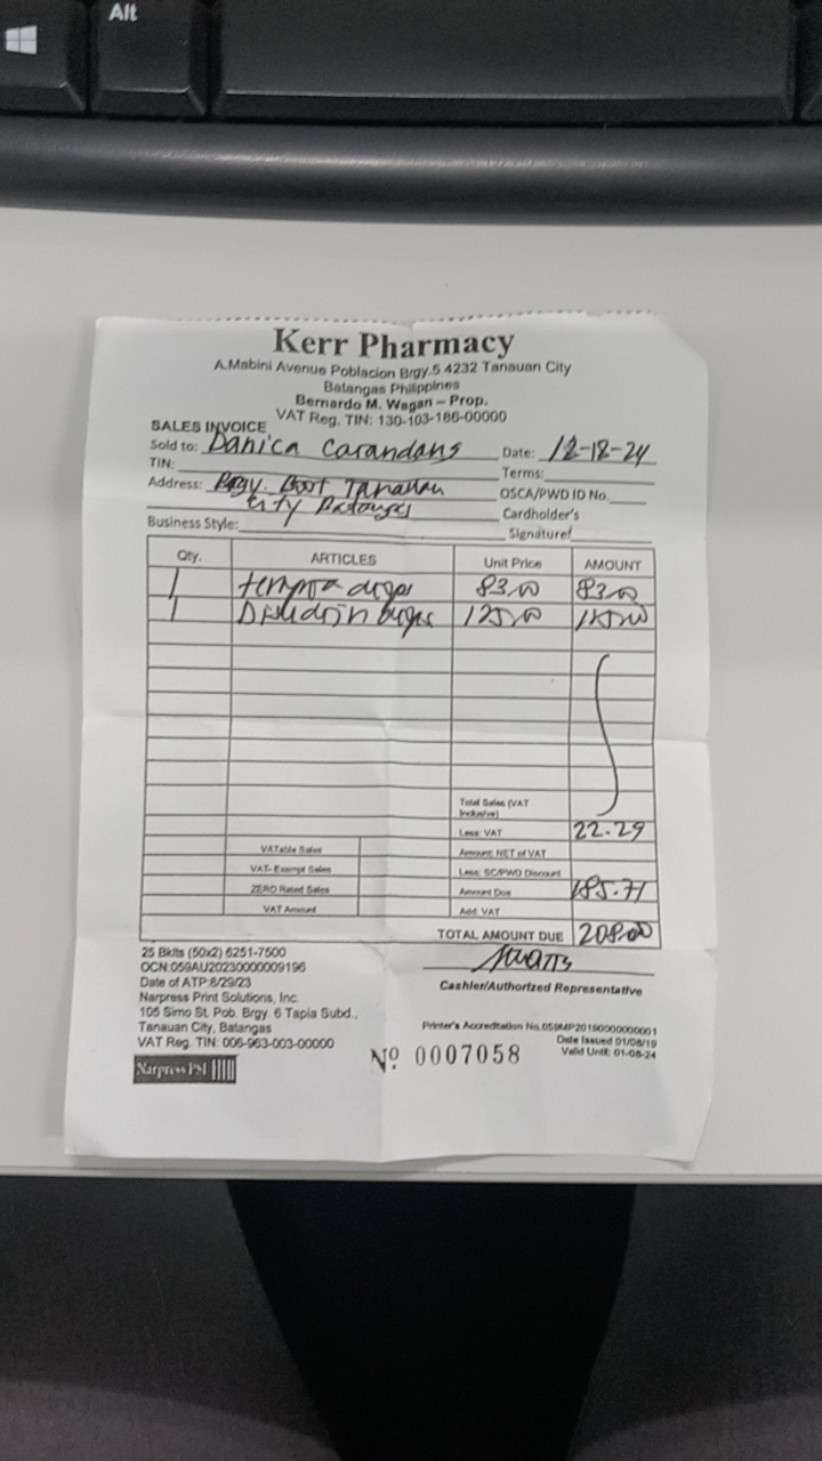 Alt
Kerr Pharmacy
A.Mabini Avenue Poblacion Brgy.5 4232 Tanauan City
Batangas Philippines
Bernardo M. Wagan – Prop.
VAT Reg. TIN: 130-103-186-00000
SALES INVOICE
Sold to: Danica Carandang Date: 12-18-24
TIN: Terms:
Address: Brgy. Boot Tanauan OSCA/PWD ID No.
City Batangas Cardholder's
Business Style: Signature:
Qty. ARTICLES Unit Price AMOUNT
1 tempra 83.00 83.00
1 125.00 125.00
Total Sales (VAT
Inclusive)
Less: VAT 22.29
VATable Sales Amount: NET of VAT
VAT- Exempt Sales Less: SC/PWD Discount
ZERO Rated Sales Amount Due 185.71
VAT Amount Add: VAT
TOTAL AMOUNT DUE 208.00
25 Bklts (50x2) 6251-7500
OCN:059AU20230000009196
Date of ATP:8/29/23
Cashier/Authorized Representative
Narpress Print Solutions, Inc.
105 Simo St. Pob. Brgy. 6 Tapia Subd.,
Tanauan City, Batangas
VAT Reg. TIN: 006-963-003-00000
Printer's Accreditation No.059MP20190000000001
Date Issued 01/08/19
Valid Until: 01-08-24
Nº. 0007058
Narpress PSI